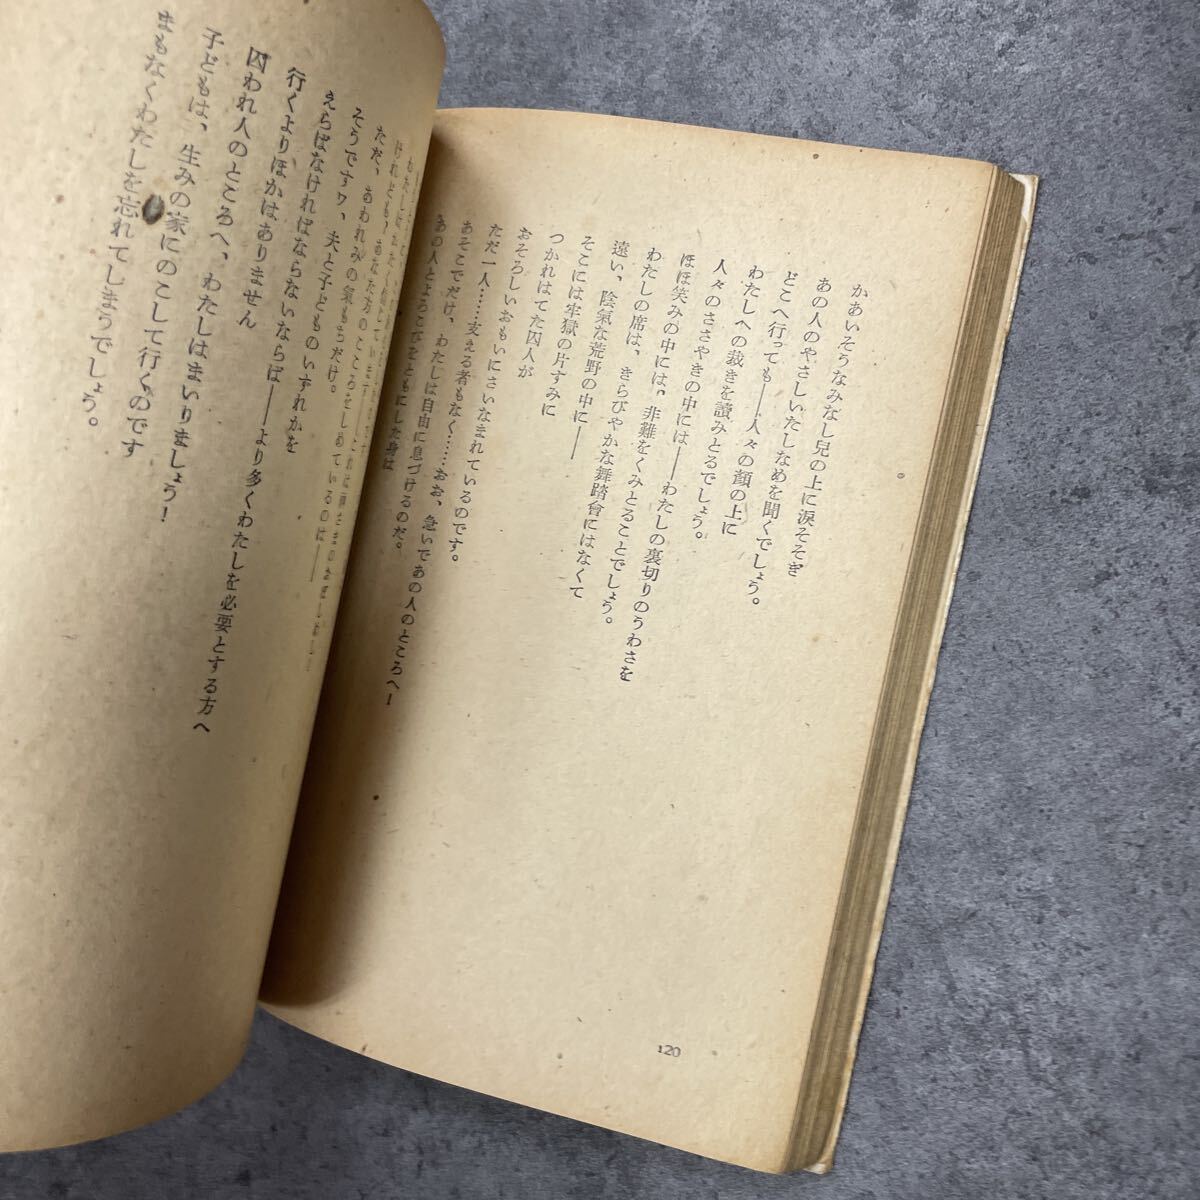 かあいそうなみなし兒の上に涙そそぎ
あの人のやさしいたしなめを聞くでしょう。
どこへ行っても――人々の顏の上に
わたしへの裁きを讀みとるでしょう。
人々のささやきの中には――わたしの裏切りのうわさを
ほほ笑みの中には、非難をくみとることでしょう。
わたしの席は、きらびやかな舞踏會にはなくて
遠い、陰氣な荒野の中に――
そこには牢獄の片すみに
つかれはてた囚人が
おそろしいおもいにさいなまれているのです。
ただ一人……支える者もなく……おお、急いであの人のところへ！
あそこでだけ、わたしは自由に息づけるのだ。
あの人とよろこびをともにした身は
120
ただ、あわれみの氣もちだけ。
そうですワ、夫と子どものいずれかを
えらばなければならないならば――より多くわたしを必要とする方へ
行くよりほかはありません
囚われ人のところへ、わたしはまいりましょう！
子どもは、生みの家にのこして行くのです
まもなくわたしを忘れてしまうでしょう。